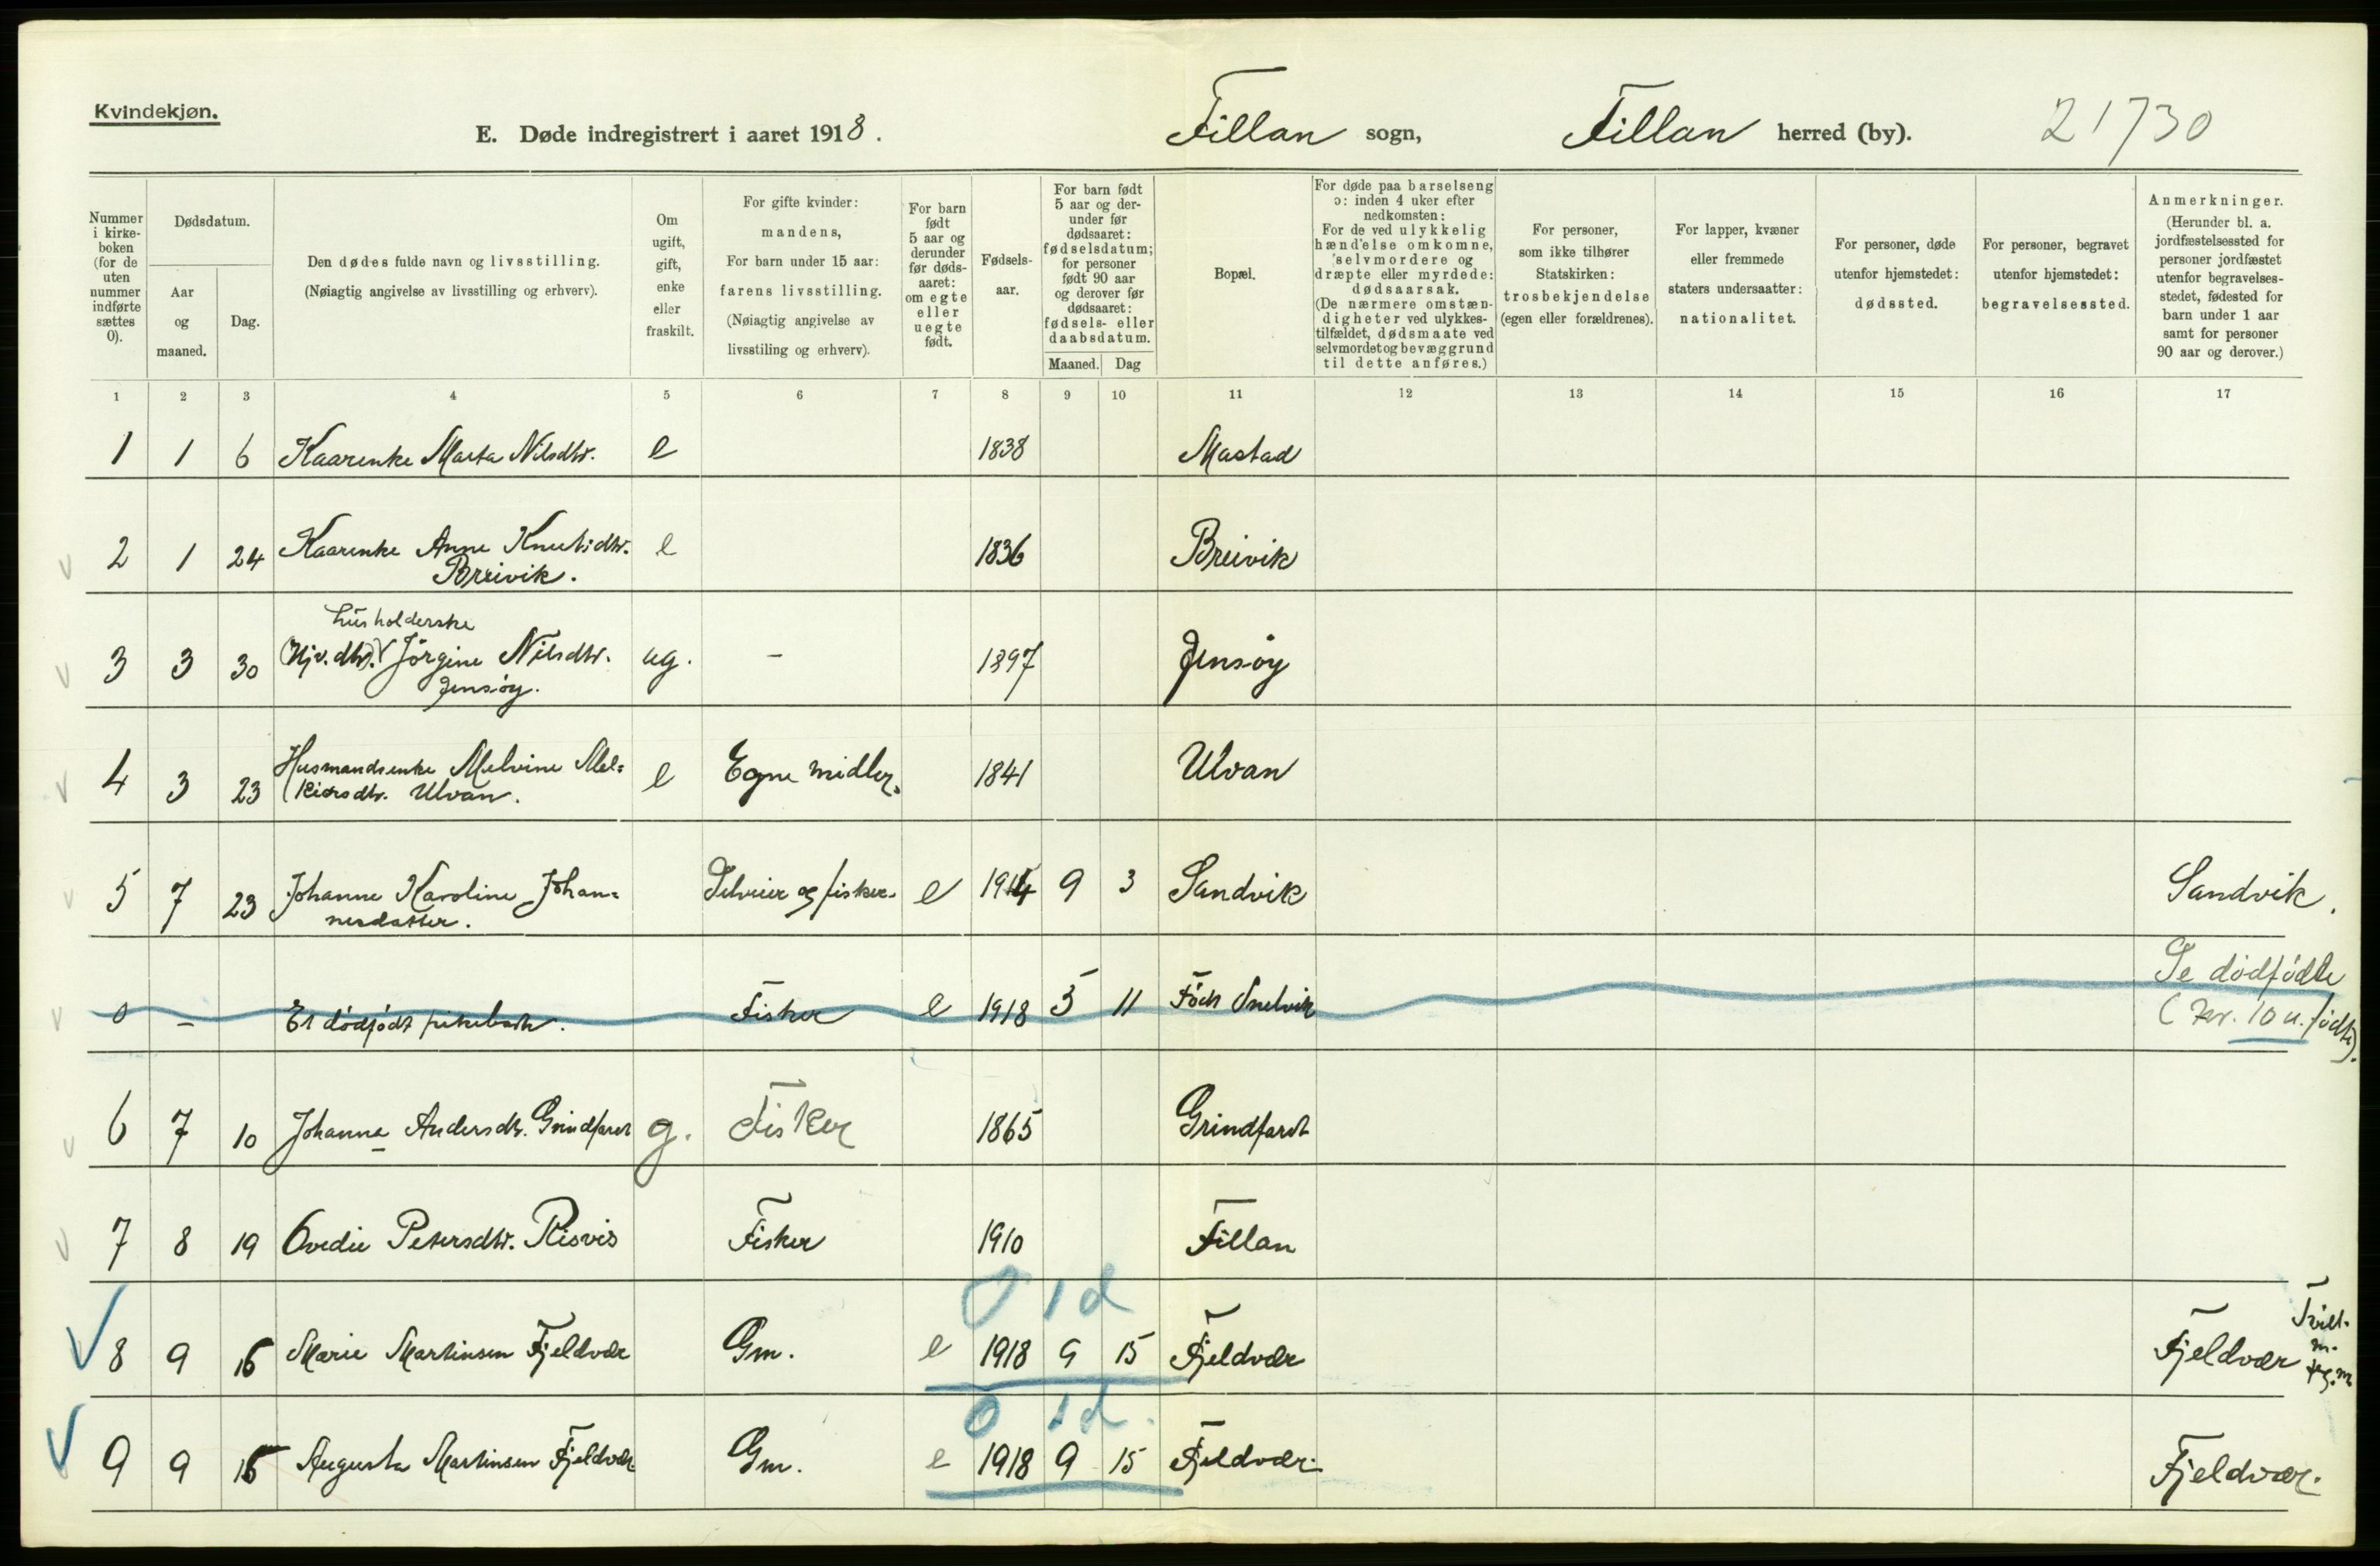 Kvindekjøn.
E. Døde indregistrert i aaret 1918. Fillan sogn, Fillan herred (by). 21730
Nummer i kirke- boken (for de uten nummer indførte sættes 0).
Dødsdatum.
Aar og maaned.
Dag.
Den dødes fulde navn og livsstilling.
(Nøiagtig angivelse av livsstilling og erhverv).
Om ugift, gift, enke eller fraskilt.
For gifte kvinder: mandens,
For barn under 15 aar: farens livsstilling.
(Nøiagtig angivelse av livsstiling og erhverv).
For barn født 5 aar og derunder før døds- aaret: om egte eller uegte født.
Fødsels- aar.
For barn født 5 aar og der- under før dødsaaret: fødselsdatum; for personer født 90 aar og derover før dødsaaret: fødsels- eller daabsdatum.
Maaned. Dag
Bopæl.
For døde paa barselseng ɔ: inden 4 uker efter nedkomsten:
For de ved ulykkelig hændelse omkomne, selvmordere og dræpte eller myrdede: dødsaarsak.
(De nærmere omstæn- digheter ved ulykkes- tilfældet, dødsmaate ved selvmordet og bevæggrund til dette anføres.)
For personer, som ikke tilhører Statskirken: trosbekjendelse (egen eller forældrenes).
For lapper, kvæner eller fremmede staters undersaatter: nationalitet.
For personer, døde utenfor hjemstedet: dødssted.
For personer, begravet utenfor hjemstedet: begravelsessted.
Anmerkninger.
(Herunder bl. a. jordfæstelsessted for personer jordfæstet utenfor begravelses- stedet, fødested for barn under 1 aar samt for personer 90 aar og derover.)
1 2 3 4 5 6 7 8 9 10 11 12 13 14 15 16 17
1 1 6 Kaarenke Marta Nilsdtr. e 1838 Mastad
2 1 24 Kaarenke Anne Knutsdtr. e 1836 Breivik
Breivik.
husholderske
3 3 30 (Hjv. dtr). Jörgine Nilsdtr. ug. – 1897 Jensöy
Jensöy.
4 3 23 Husmandsenke Melvine Mel= e Egne midler. 1841 Ulvan
kiorsdtr. Ulvan.
5 7 23 Johanne Karoline Johan= Selveier og fisker. e 1914 9 3 Sandvik Sandvik.
nesdatter.
Se dödfödte
0 – Et dödfödt pikebarn. Fisker e 1918 5 11 Snelvik
(Nr. 10 u. födte).
6 7 10 Johanna Andersdtr. Grindfaret g. Fisker 1865 Grindfaret
7 8 19 Ovedie Petersdtr. Risvis Fisker 1910 Fillan
0 1 d
8 9 16 Marie Martinsen Fjeldvær Gm. e 1918 9 15 Fjeldvær Fjeldvær Tvill. m.
0 1 d.
9 9 16 Augusta Martinsen Fjeldvær Gm. e 1918 9 15 Fjeldvær. Fjeldvær.